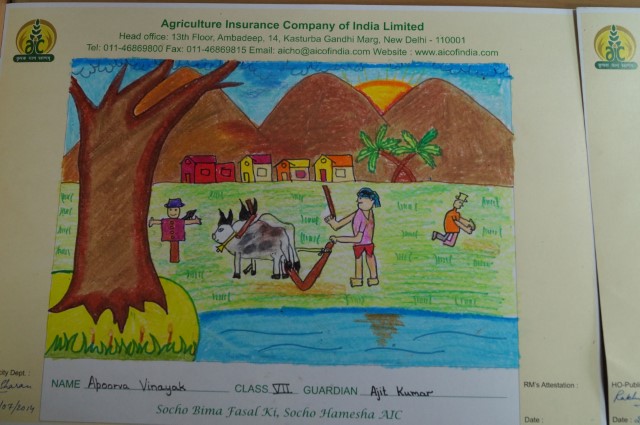 Agriculture Insurance Company of India Limited
Head office: 13th Floor, Ambadeep, 14, Kasturba Gandhi Marg, New Delhi - 110001
Tel: 011-46869800 Fax: 011-46869815 Email: aicho@aicofindia.com Website : www.aicofindia.com
AIC
AIC
city Dept :
/07/2014
NAME Apoorva Vinayak CLASS VII GUARDIAN Ajit Kumar
Socho Bima Fasal Ki, Socho Hamesha AIC
RM's Attestation :
Date :
HO-Public
Date :